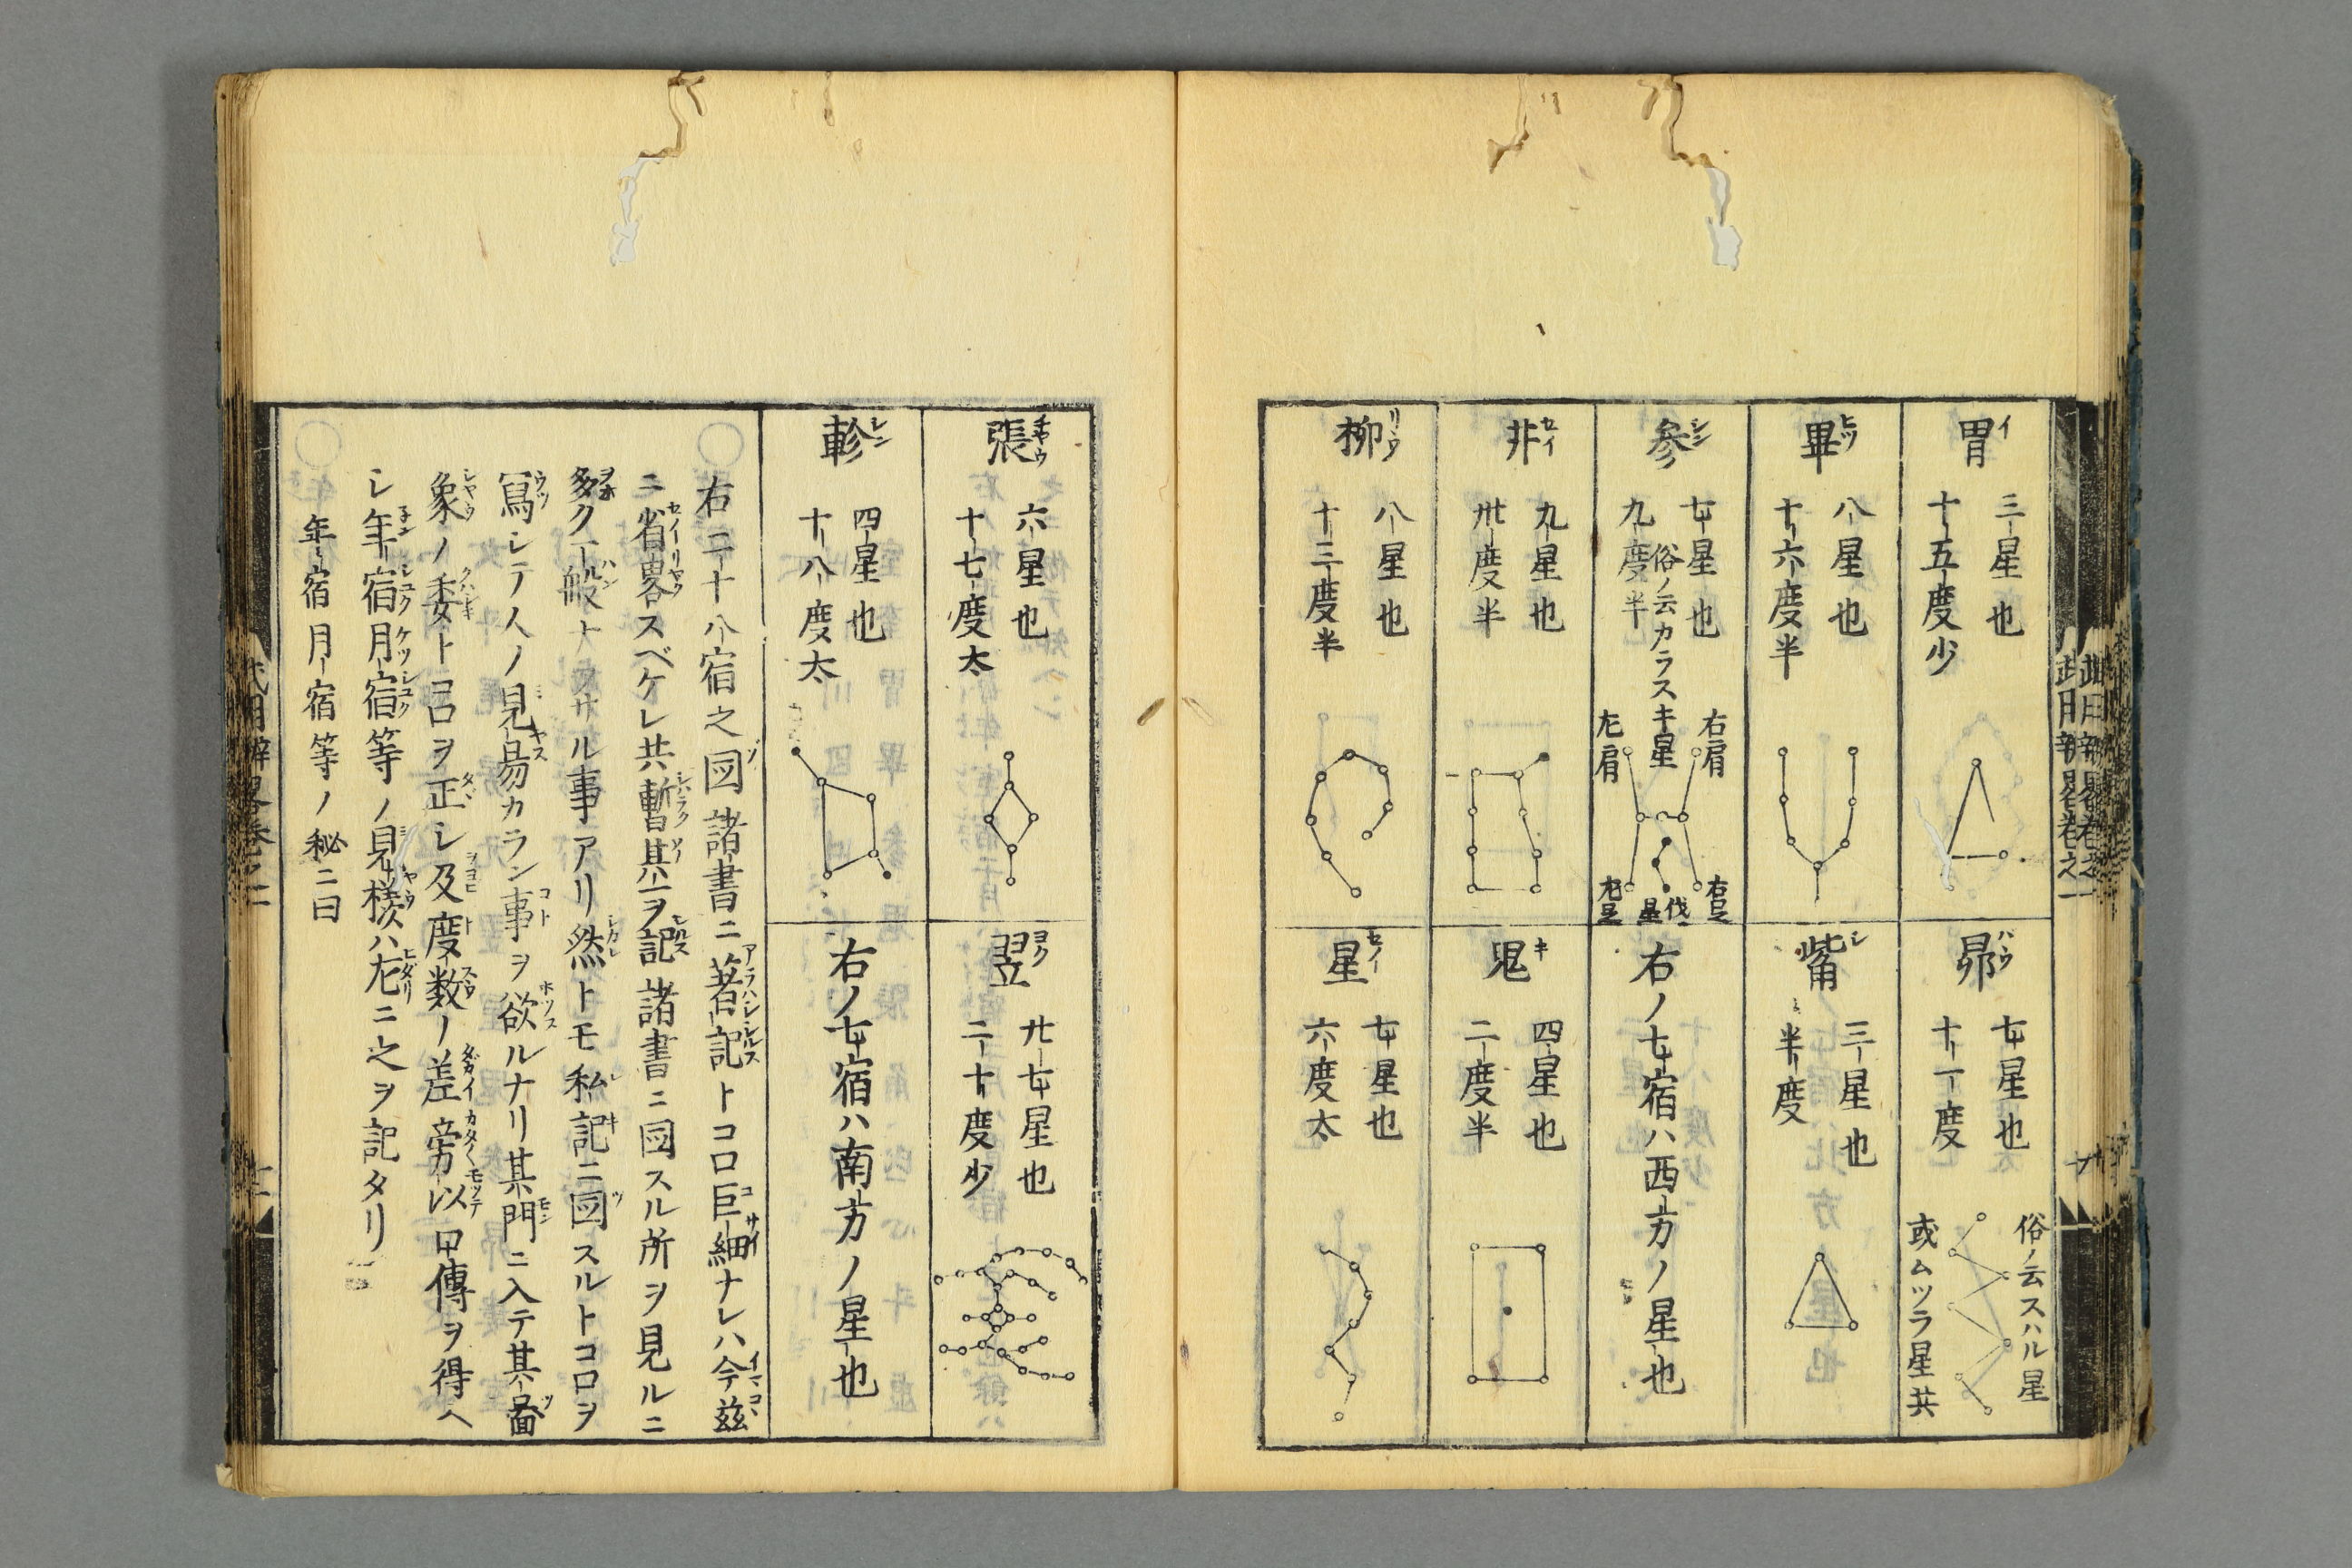 胃イ
三星也
十五度少
昴バウ
七星也
十一度
俗ノ云スハル星
或ムツラ星共
畢ヒツ
八星也
十六度半
觜シ
三星也
半度
参シン
七星也
九度半
俗ノ云カラスキ星
右肩
左肩
右足
伐星
左足
右ノ七宿ハ西方ノ星也
井セイ
九星也
卅度半
鬼キ
四星也
二度半
柳リウ
八星也
十三度半
星セイ
七星也
六度太
張チヤウ
六星也
十七度太
翌ヨク
廿七星也
二十度少
軫シン
四星也
十八度太
右ノ七宿ハ南方ノ星也
○右二十八宿之図諸書ニ著記トコロ巨細ナレハ今茲
ニ省畧スベケレ共暫其一ヲ記諸書ニ図スル所ヲ見ルニ
多ク一般トナラサル事アリ然トモ私記ニ図スルトコロヲ
寫シテ人ノ見易カラン事ヲ欲ルナリ其門ニ入テ其啚
象ノ委トコロヲ正シ及度数ノ差旁以口傳ヲ得ヘ
シ年宿月宿等ノ見様ハ左ニ之ヲ記タリ
○年宿月宿等ノ秘ニ曰